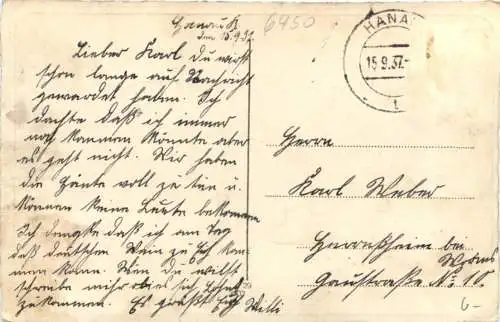 Hanau
den 15.9.37.
6950
Lieber Karl du wirst
schon lange auf Nachricht
gewardet haben. Ich
dachte daß ich immer
noch kommen könnte aber
es geht nicht. Wir haben
die Hände voll zu tun u.
können keine Leute bekommen
Ich denke daß ich am Tag
des deutschen Wein zu
men kann. Wen du willst
schreibe mir ob es sich
zukommen. Es grüßt Euch Willi
HANAU
15.9.37.-
1
Herrn
Karl Weber
Herrnsheim bei
Worms
Gaustraße No. 10.
6-